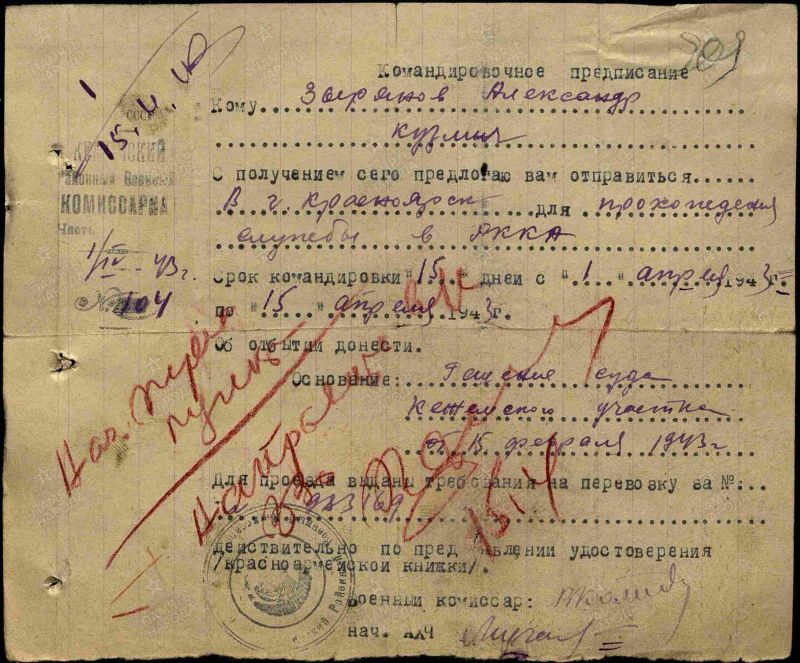 Командировочное предписание
Кому Зырянов Александр
Кузмич
С получением сего предлогаю вам отправиться
В г. Красноярск для прохождения
службы в РККА
Срок командировки "15" дней с "1" апреля 1943г.
по "15" апреля 1943г.
Об отбытии донести.
Основание: Решение суда
Кежемского участка
от 15 февраля 1943г
Для проезда выданы требования на перевозку за №:
923169
действительно по предъявлении удостоверения
/красноармейской книжки/.
Военный комиссар:
нач. АХЧ
СССР
Районный Военный
КОМИССАРИА
Часть
1/IV-43г.
№ 104
15.4.
Нач. пункта
Направ
15/4